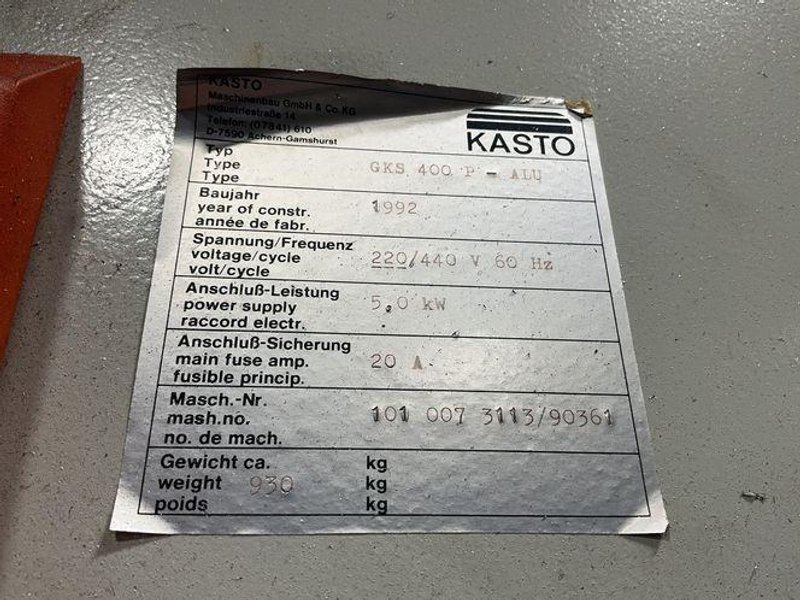 KASTO
Maschinenbau GmbH & Co. KG
Industriestraße 14
Telefon: (07841) 610
D-7590 Achern-Gamshurst
KASTO
Typ
Type GKS 400 P - ALU
Type
Baujahr
year of constr. 1992
année de fabr.
Spannung/Frequenz
voltage/cycle 220/440 V 60 Hz
volt/cycle
Anschluß-Leistung
power supply 5,0 kW
raccord electr.
Anschluß-Sicherung
main fuse amp. 20 A
fusible princip.
Masch.-Nr.
mash.no. 101 007 3113/90361
no. de mach.
Gewicht ca. kg
weight 930 kg
poids kg